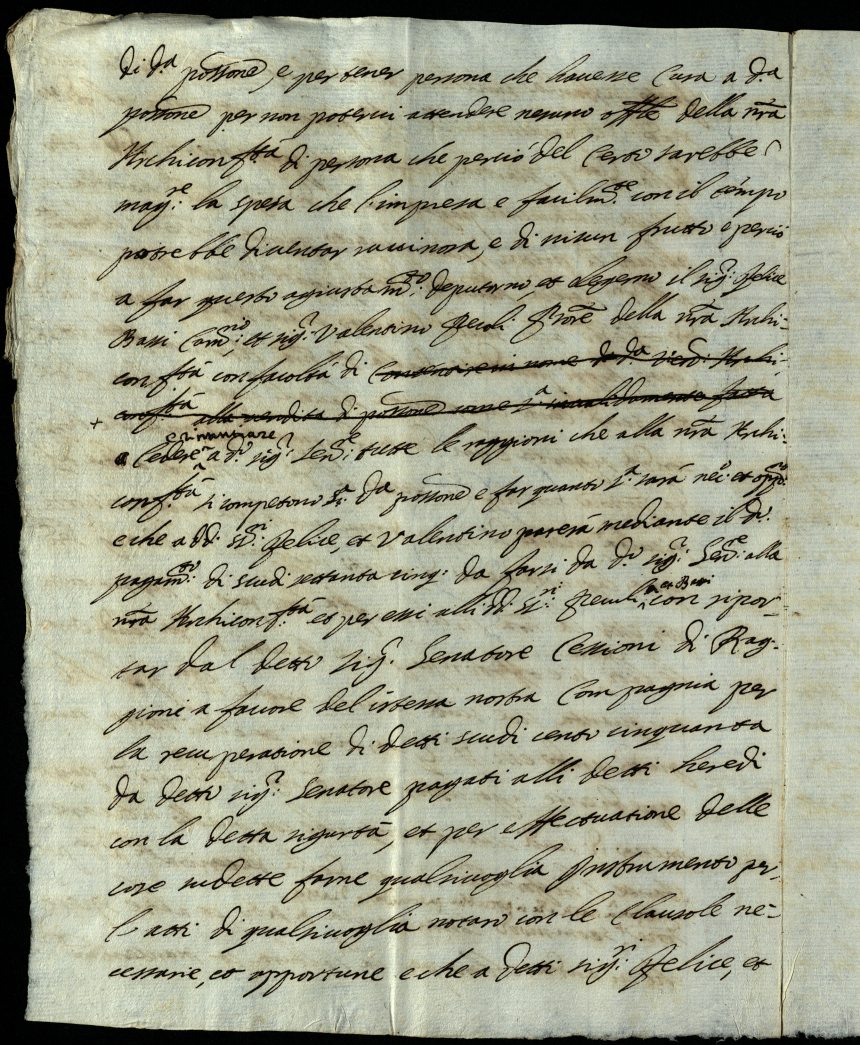 di d.ª possone, e per tener persona che havesse Cura a d.ª
possone per non potervi attendere nesuno offle della nrã
Archiconf.ttá di persona che perciò del Certo sarebbe
mag.re la spesa che l'impresa e facilm.te con il tempo
potrebbe diventar ruvinosa, e di nisun frutto e perciò
a far questo agiustam.to: deputorno, et elegerno il sig.r felice
Bassi Cam.rio, et sig.r Valentino Pecoli Priore della nrã Archi-
conf.ttá con facoltá di Consentire in nome di d.ª Archi-
conf.ttá alla vendita di possone come s.ª invalidamente fatta
+ e rinunziare
a Cedere a d.o sig.r Sen.re: tutte le raggioni che alla nrã Archi-
conf.ttá si competono s.ª d.ª possone e far quanto s.ª sará nec.o et opp.no
e che a dd. ss.ri felice, et Valentino parerá mediante il d.o
pagam.to: di scudi settanta cinq: da farsi da d.o sig.r Sen.re alla
nrã Archiconf.ttá et per essi alli dd. ss.ri Pecoli, et Bassi con ripor-
tar dal detto sig.r Senatore Cessioni di Rag-
gioni a favore del istessa nostra Compagnia per
la recuperatione di detti scudi cento cinquanta
da detto sig.r Senatore pagati alli detti heredi
con la detta sigurtá, et per effectuatione delle
cose sudette farne qualsivoglia Instrumento per
l'atti di qualsivoglia notaro con le Clausole ne-
cessarie, et opportune e che a detti sig.ri felice, et